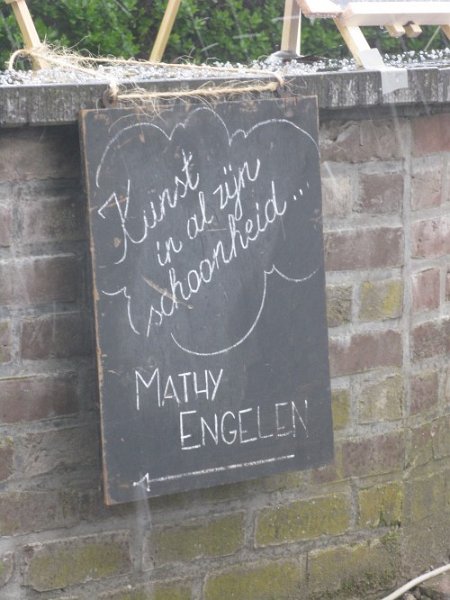 Kunst
in al zijn
schoonheid...
MATHY
ENGELEN